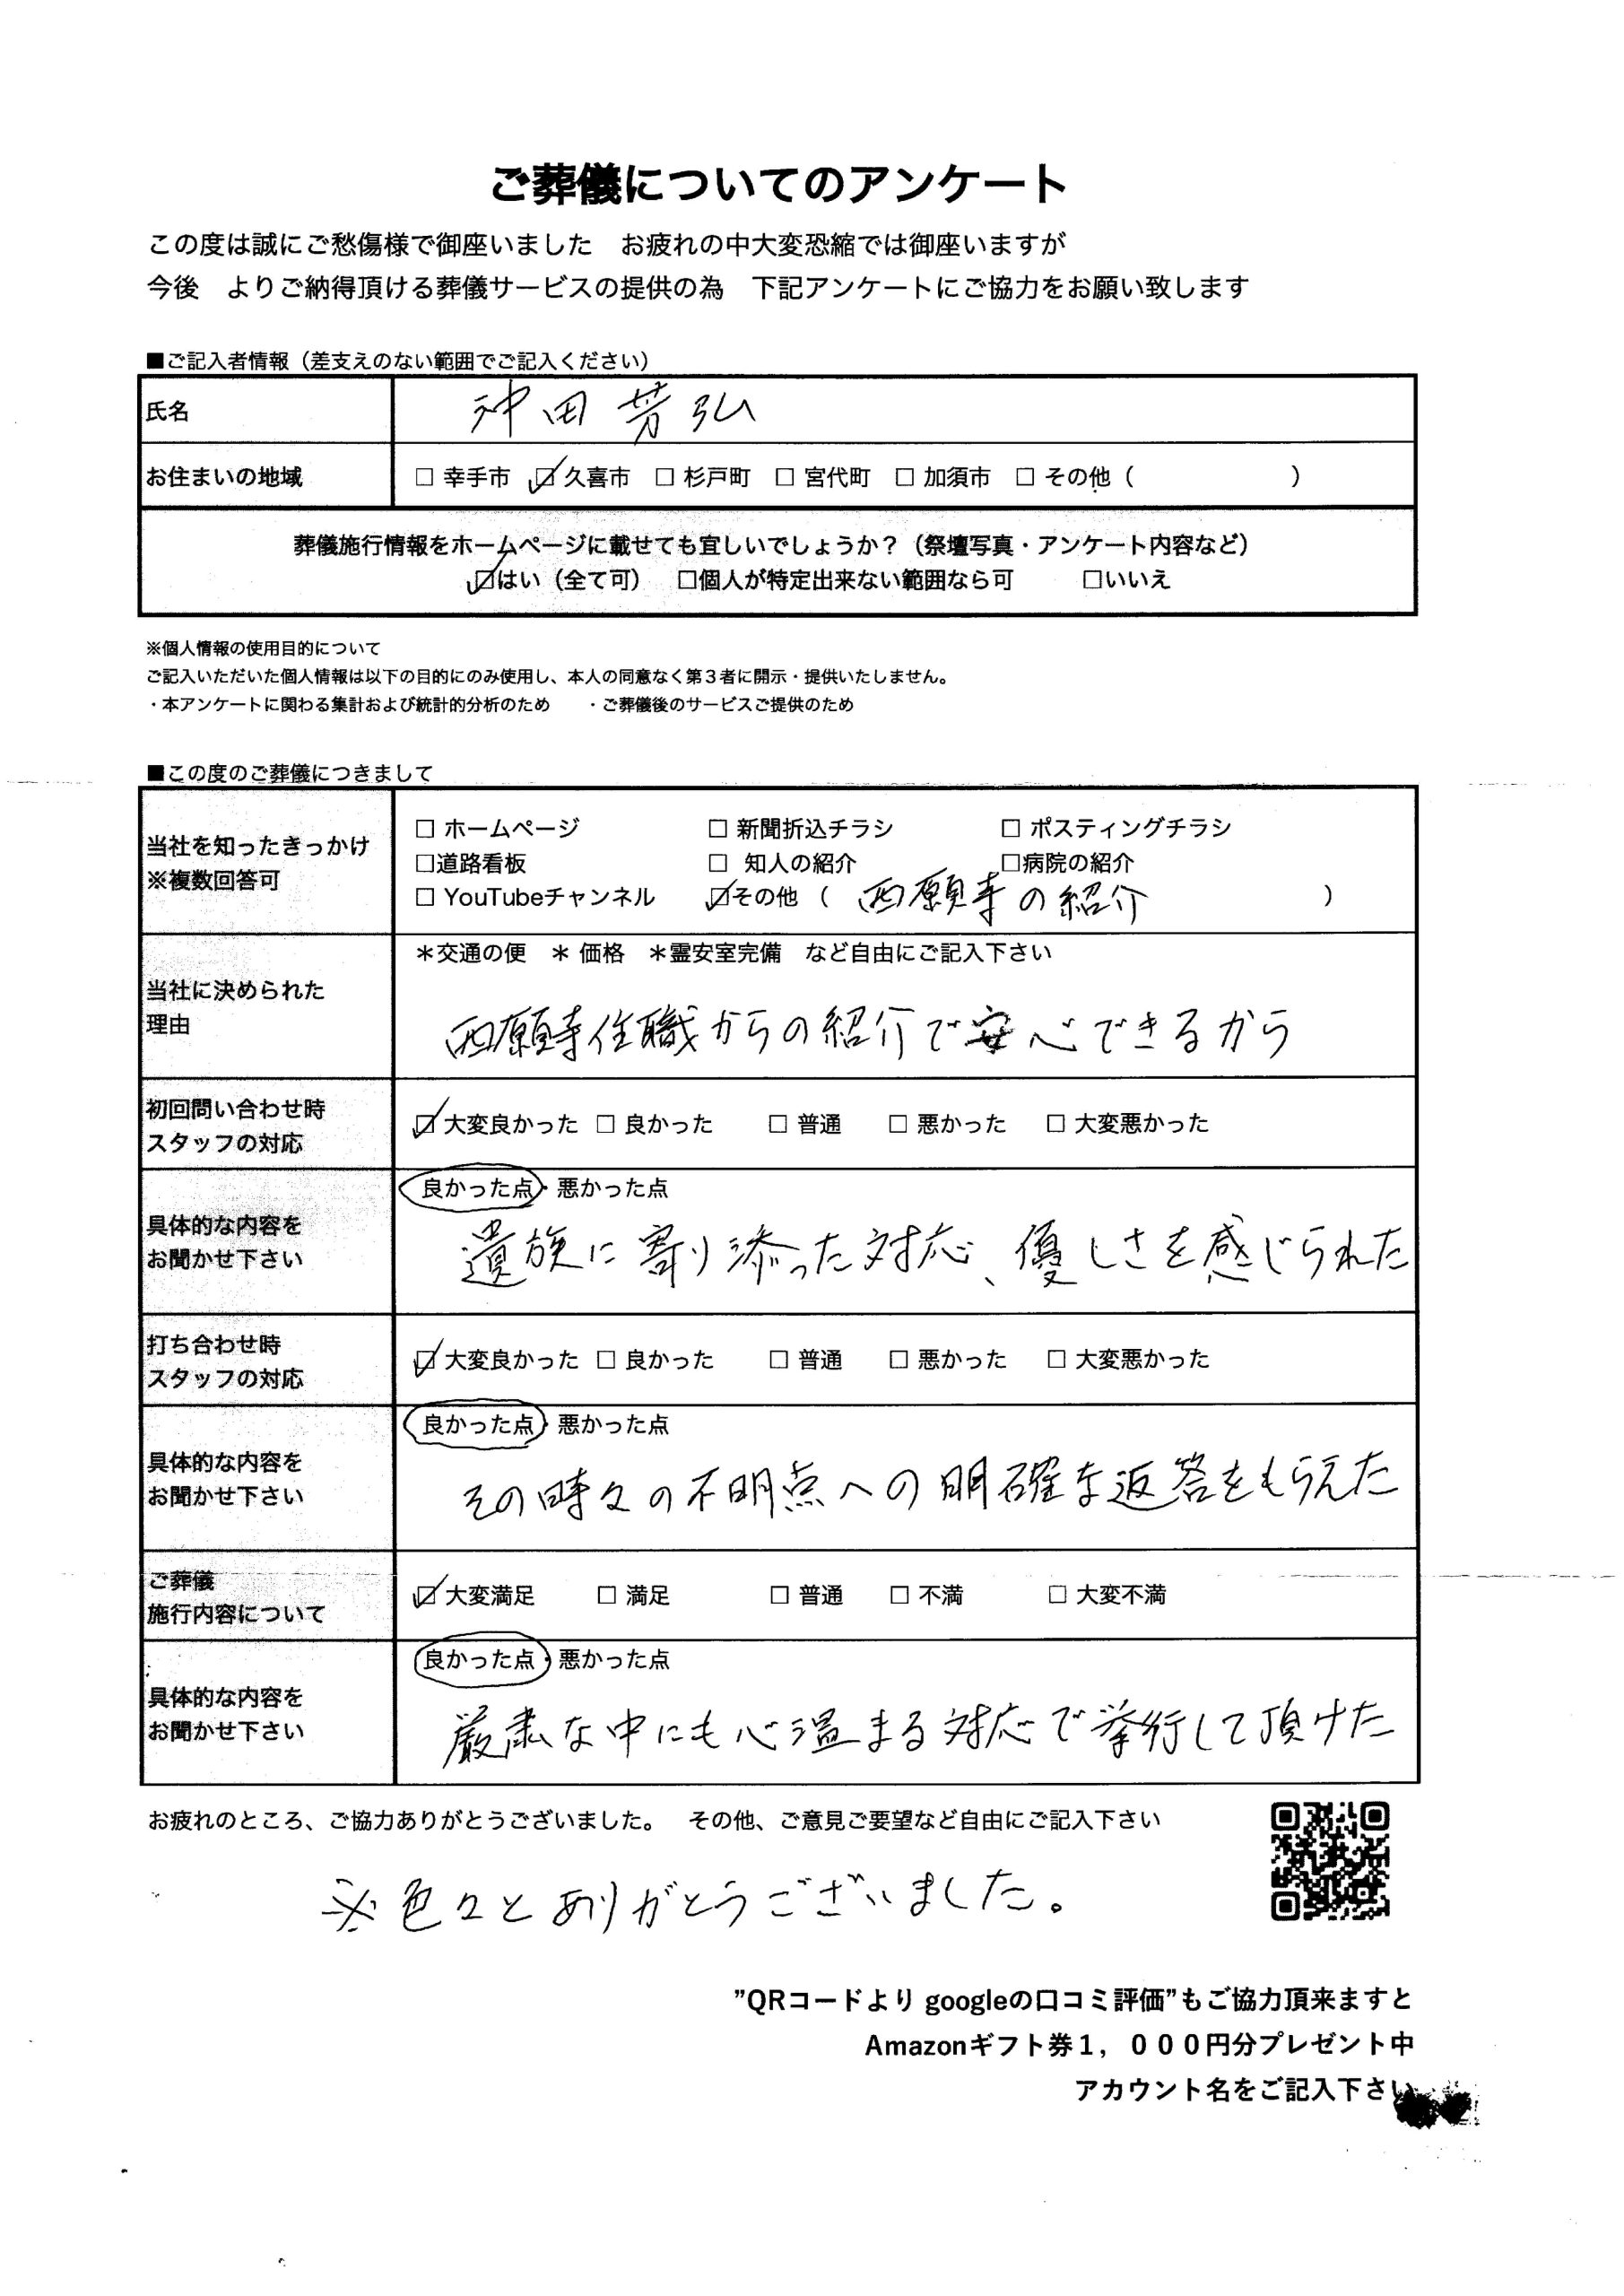 ご葬儀についてのアンケート
この度は誠にご愁傷様で御座いました　お疲れの中大変恐縮では御座いますが
今後　よりご納得頂ける葬儀サービスの提供の為　下記アンケートにご協力をお願い致します
■ご記入者情報（差支えのない範囲でご記入ください）
氏名 沖田芳弘
お住まいの地域 □ 幸手市 ☑ 久喜市 □ 杉戸町 □ 宮代町 □ 加須市 □ その他（　　　　）
葬儀施行情報をホームページに載せても宜しいでしょうか？（祭壇写真・アンケート内容など）
☑はい（全て可） □個人が特定出来ない範囲なら可 □いいえ
※個人情報の使用目的について
ご記入いただいた個人情報は以下の目的にのみ使用し、本人の同意なく第３者に開示・提供いたしません。
・本アンケートに関わる集計および統計的分析のため　・ご葬儀後のサービスご提供のため
■この度のご葬儀につきまして
当社を知ったきっかけ
※複数回答可
□ ホームページ □ 新聞折込チラシ □ ポスティングチラシ
□道路看板 □ 知人の紹介 □病院の紹介
□ YouTubeチャンネル ☑その他（ 西願寺の紹介 ）
当社に決められた
理由
＊交通の便　＊ 価格　＊霊安室完備　など自由にご記入下さい
西願寺住職からの紹介で安心できるから
初回問い合わせ時
スタッフの対応
☑ 大変良かった □ 良かった □ 普通 □ 悪かった □ 大変悪かった
具体的な内容を
お聞かせ下さい
良かった点・悪かった点
遺族に寄り添った対応、優しさを感じられた
打ち合わせ時
スタッフの対応
☑ 大変良かった □ 良かった □ 普通 □ 悪かった □ 大変悪かった
具体的な内容を
お聞かせ下さい
良かった点・悪かった点
その時々の不明点への明確な返答をもらえた
ご葬儀
施行内容について
☑ 大変満足 □ 満足 □ 普通 □ 不満 □ 大変不満
具体的な内容を
お聞かせ下さい
良かった点・悪かった点
厳粛な中にも心温まる対応で挙行して頂けた
お疲れのところ、ご協力ありがとうございました。　その他、ご意見ご要望など自由にご記入下さい
※色々とありがとうございました。
”QRコードより googleの口コミ評価”もご協力頂来ますと
Amazonギフト券１，０００円分プレゼント中
アカウント名をご記入下さい